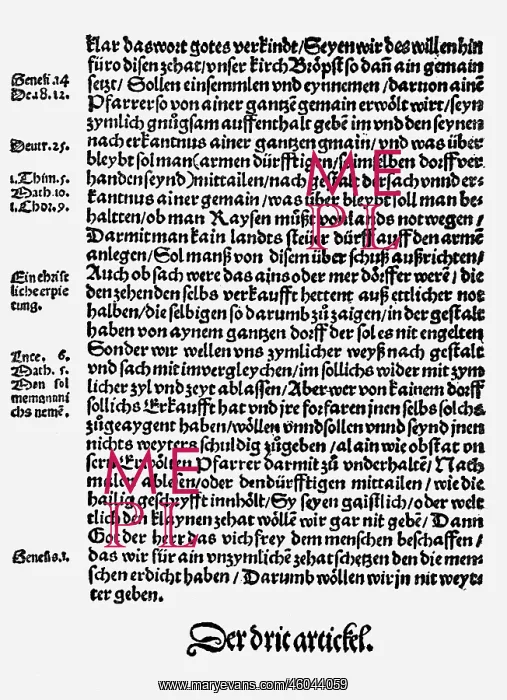 klar das wort gotes verkindt/Seyen wir des willen hin
füro disen zehat/vnser kirch Bröpst so dañ ain gemain
Genesi.14
setzt/ Sollen einsemmlen vnd eynnemen/daruon ainē
De.18.12.
Pfarrer so von ainer gantzē gemain erwölt wirt/seyn
zymlich gnůgsam auffenthalt gebē im vnd den seynen
Deutr.25.
nach erkantnus ainer gantzen gmain/vnd was über
bleybt sol man(armen dürfftigen/so im selben dorff ver
1.Thim.5.
handen seynd)mittailen/nach gestalt der sach vnnd er-
Math.10.
kantnus ainer gemain/was über bleybt soll man be-
1.Chor.9.
haltten/ob man Raysen müßt von lands not wegen/
Darmit man kain landts steüer dürff auff den armē
anlegen/Sol manß von disem überschuß außrichten/
Ein christ
Auch ob sach were das ains oder mer dörffer werē/die
liche erpie
den zehenden selbs verkaufft hettent auß ettlicher not
tung.
halben/die selbigen so darumb zů zaigen/in der gestalt
haben von aynem gantzen dorff der sol es nit engelten
Luce. 6.
Sonder wir wellen vns zymlicher weyß nach gestalt
Math. 5.
vnd sach mit im vergleychen/im sollichs wider mit zym
Man sol
licher zyl vnd zeyt ablassen/Aber wer von kainem dorff
sollichs Erkaufft hat vnd jre forfaren jnen selbs solchs
chs nemē.
zůgeaygent haben/wöllen vnnd sollen vnnd seynd jnen
nichts weyters schuldig zůgeben/alain wie obstat vn
sern Erwölten Pfarrer darmit zů vnderhaltē/Nach
malen ablesen/oder den dürfftigen mittailen/wie die
hailig geschryfft innhölt/Sy seyen gaistlich/oder welt
tlich den klaynen zehat wöllē wir gar nit gebē/Dann
Got der herr das vich frey dem menschen beschaffen/
Genesis.1.
das wir für ain vnzymlichē zehat schetzen den die men-
schen erdicht haben/Darumb wöllen wir jn nit weyts
ter geben.
Der drit artickel.
ME
PL
ME
PL
www.maryevans.com/46044059